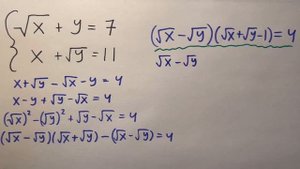 √x + y = 7
x + √y = 11
x + √y - √x - y = 4
x - y + √y - √x = 4
(√x)² - (√y)² + √y - √x = 4
(√x - √y)(√x + √y) - (√x - √y) = 4
(√x - √y)(√x + √y - 1) = 4
√x - √y